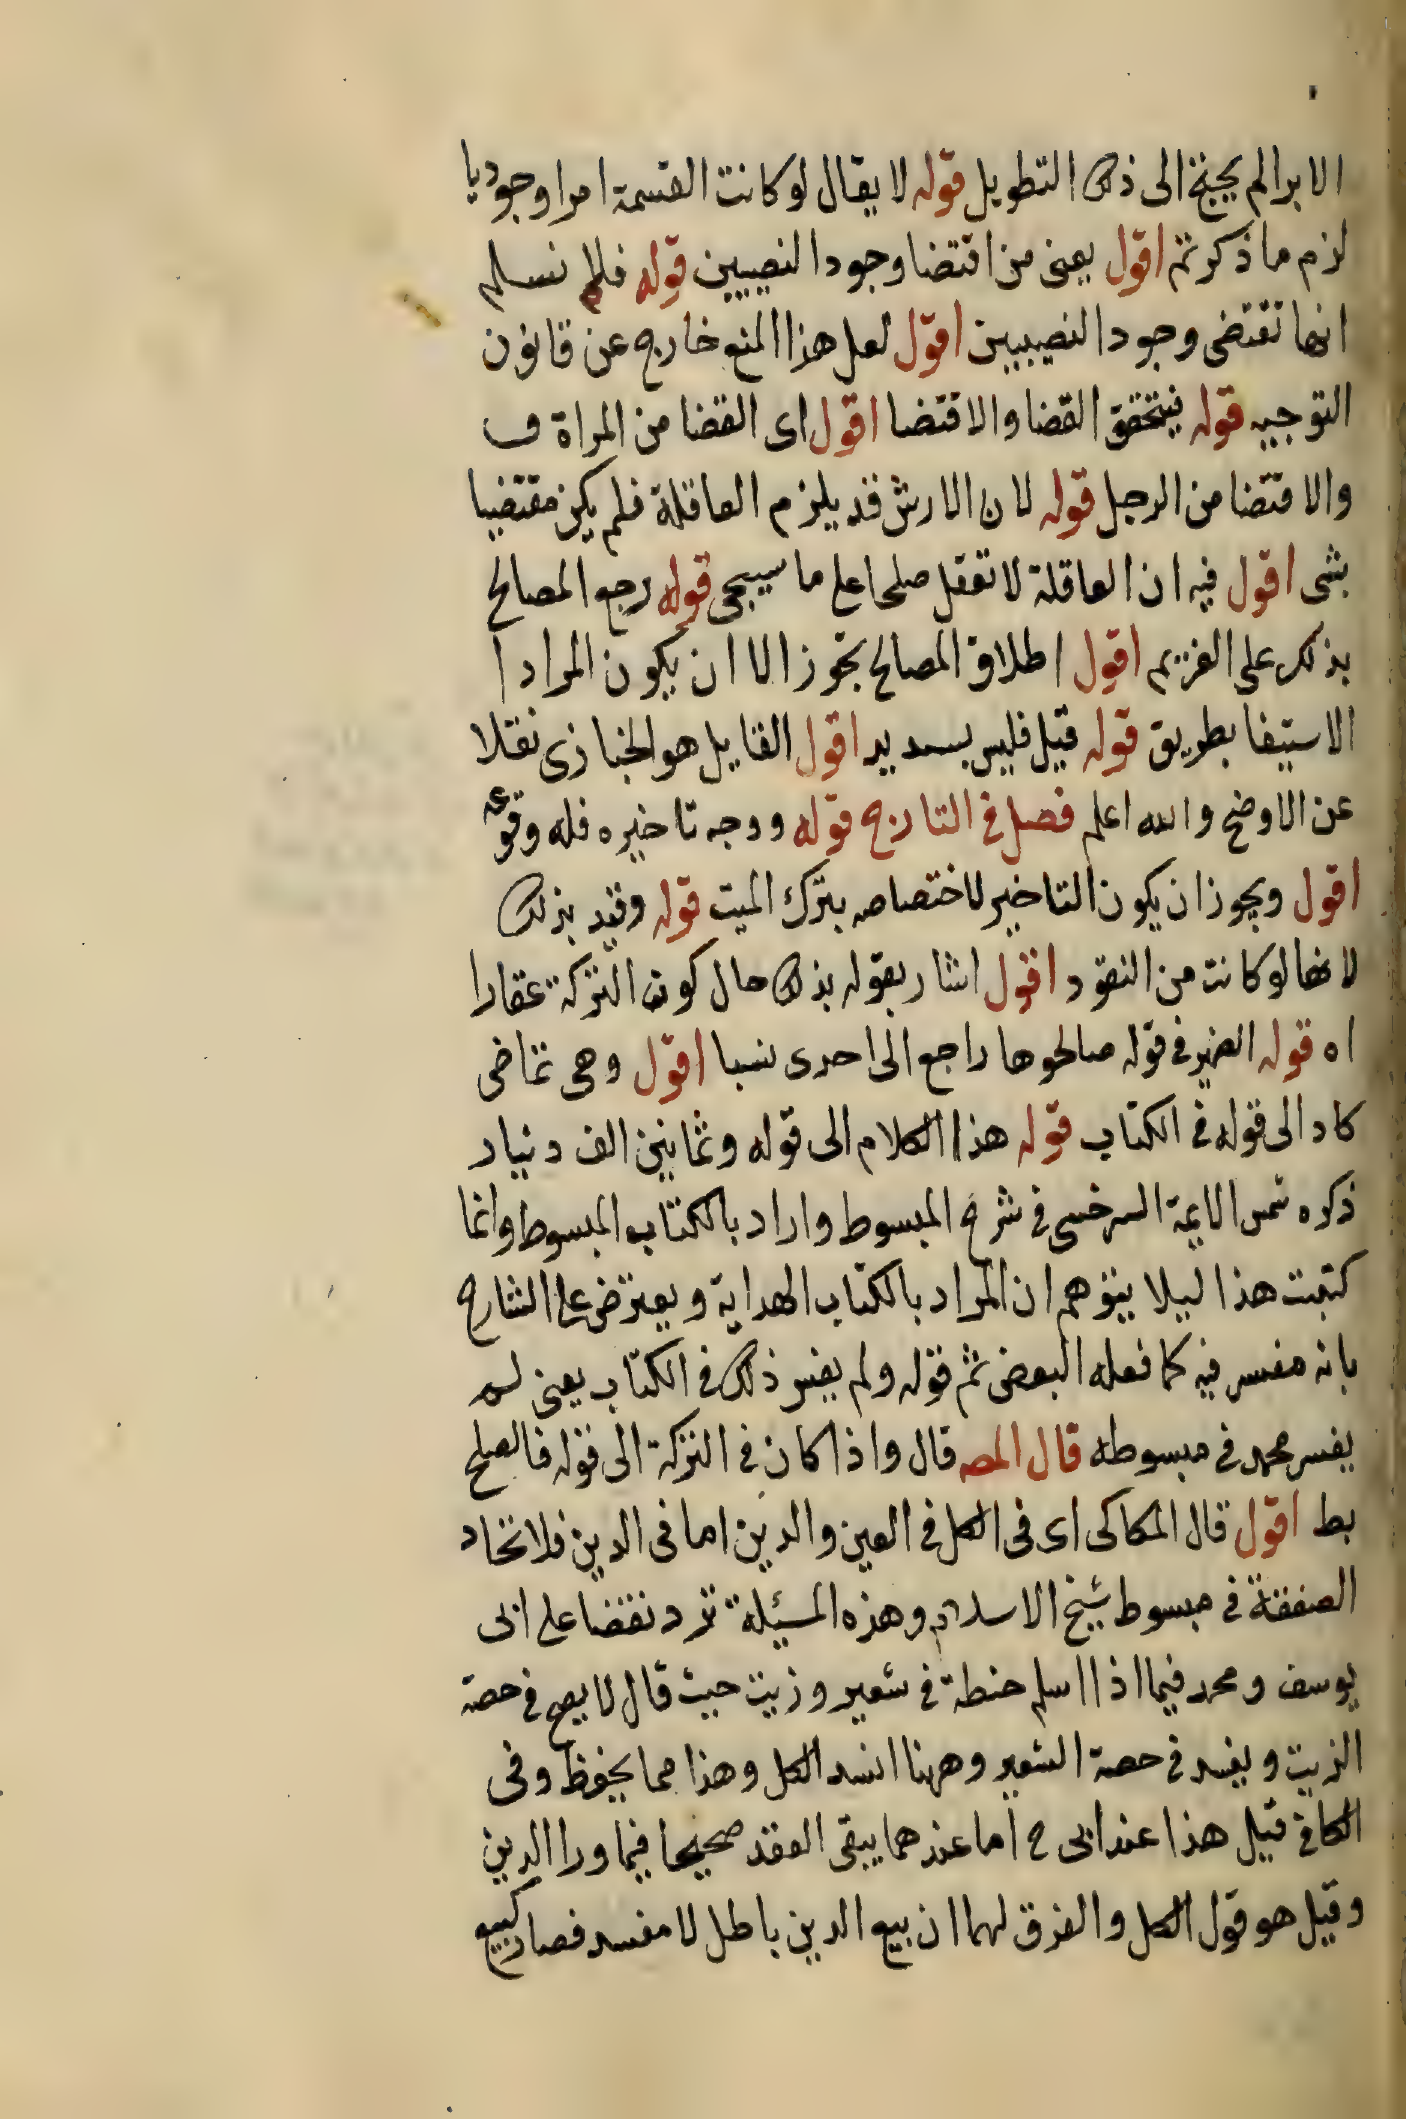 الابرا لم يحتج الى ذلك التطويل قوله لا يقال لو كانت القسمة امرا وجوديا
لزم ما ذكرتم اقول يعنى من اقتضا وجود النصيبين قوله فلا نسلم
انها تقتضى وجود النصيبين اقول لعل هذا المنع خارج عن قانون
التوجيه قوله فيتحقق القضا والاقتضا اقول اى القضا من المراة ف
والاقتضا من الرجل قوله لان الارش قد يلزم العاقلة فلم يكن مقتضيا
بشى اقول فيه ان العاقلة لا تعقل صلحا على ما سيجى قوله رجع المصالح
بذلك على الغريم اقول اطلاق المصالح تجوز الا ان يكون المراد ا
الاستيفا بطريق قوله قيل فليس بسديد اقول القايل هو الخبازى نقلا
عن الاوضح والله اعلم فصل فى التارج قوله ووجه تاخيره فله وقوعه
اقول ويجوز ان يكون التاخير لاختصاصه بترك الميت قوله وقيد بذلك
لانها لو كانت من النقود اقول اشار بقوله بذلك حال كون التركة عقارا
اه قوله الضمير فى قوله صالحوها راجع الى احدى نسبا اقول وهى تماضى
كاد الى قوله فى الكتاب قوله هذا الكلام الى قوله وثمانين الف دنيار
ذكره شمس الايمة السرخسى فى شرح المبسوط واراد بالكتاب المبسوط وانما
كتبت هذا ليلا يتوهم ان المراد بالكتاب الهداية ويعترض على الشارح
بانه مفسر فيه كما فعله البعض ثم قوله ولم يفسر ذلك فى الكتاب يعنى لم
يفسر محمد فى مبسوطه قال المصه قال واذا كان فى التركة الى قوله فالصلح
بط اقول قال الكاكى اى فى الكل فى العين والدين اما فى الدين فلاتحاد
الصفقة فى مبسوط شيخ الاسلام وهذه المسيلة ترد نقضا على ابى
يوسف ومحمد فيما اذا اسلم حنطة فى شعير وزيت حيث قال لا يصح فى حصة
الزيت ويفسد فى حصة الشعير وههنا افسد الكل وهذا مما يحفظ وفى
الكافى قيل هذا عند ابى ح اما عندهما يبقى العقد صحيحا فيما ورا الدين
وقيل هو قول الكل والفرق لهما ان بيع الدين باطل لا مفسد فصار كبيع